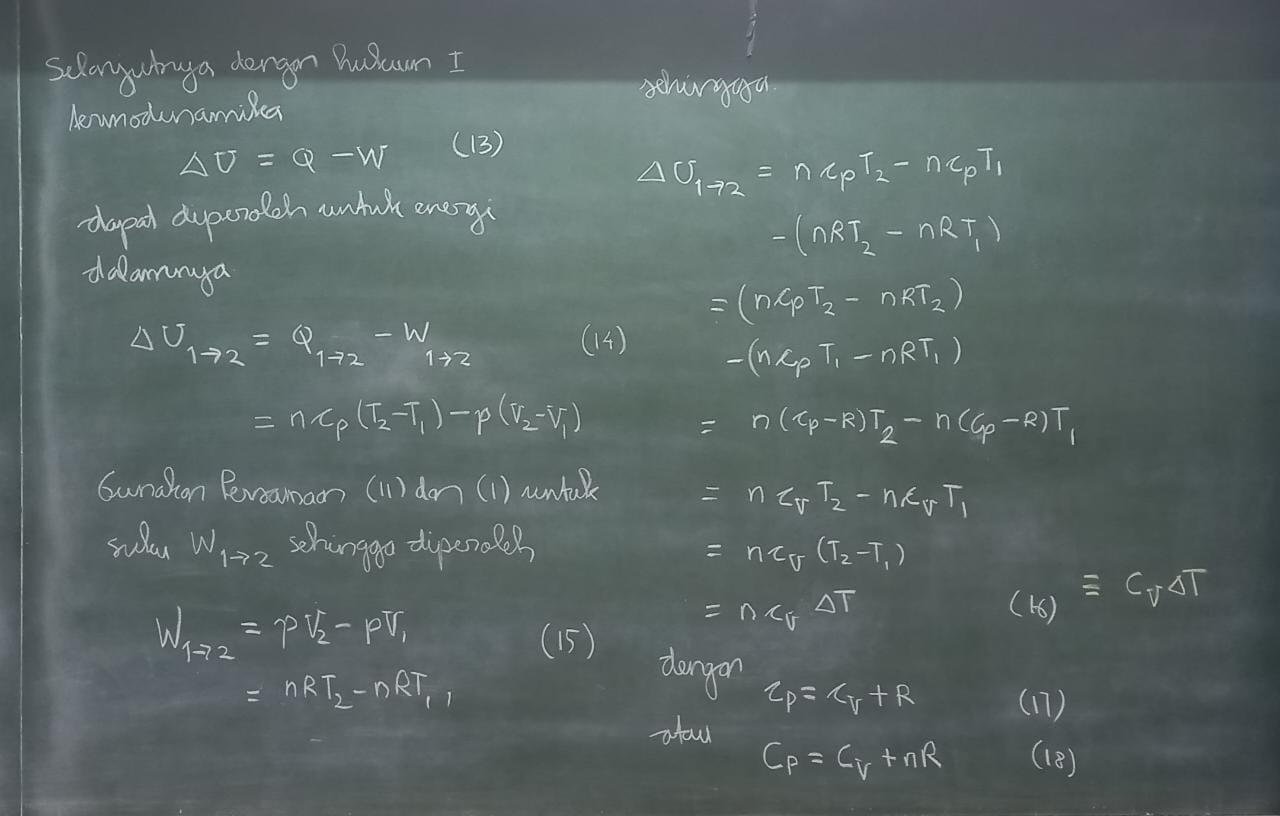 Selanjutnya dengan hukum I
termodinamika
ΔU = Q - W (13)
dapat diperoleh untuk energi
dalamnya
ΔU₁→₂ = Q₁→₂ - W₁→₂ (14)
= n c_p (T₂-T₁) - p (V₂-V₁)
Gunakan Persamaan (11) dan (1) untuk
suku W₁→₂ sehingga diperoleh
W₁→₂ = pV₂ - pV₁ (15)
= nRT₂ - nRT₁,
sehingga
ΔU₁→₂ = n c_p T₂ - n c_p T₁
- (nRT₂ - nRT₁)
= (n c_p T₂ - nRT₂)
-(n c_p T₁ - nRT₁)
= n(c_p-R)T₂ - n(c_p-R)T₁
= n c_V T₂ - n c_V T₁
= n c_V (T₂-T₁)
= n c_V ΔT (16) ≡ C_V ΔT
dengan
c_p = c_V + R (17)
atau
C_p = C_V + nR (18)